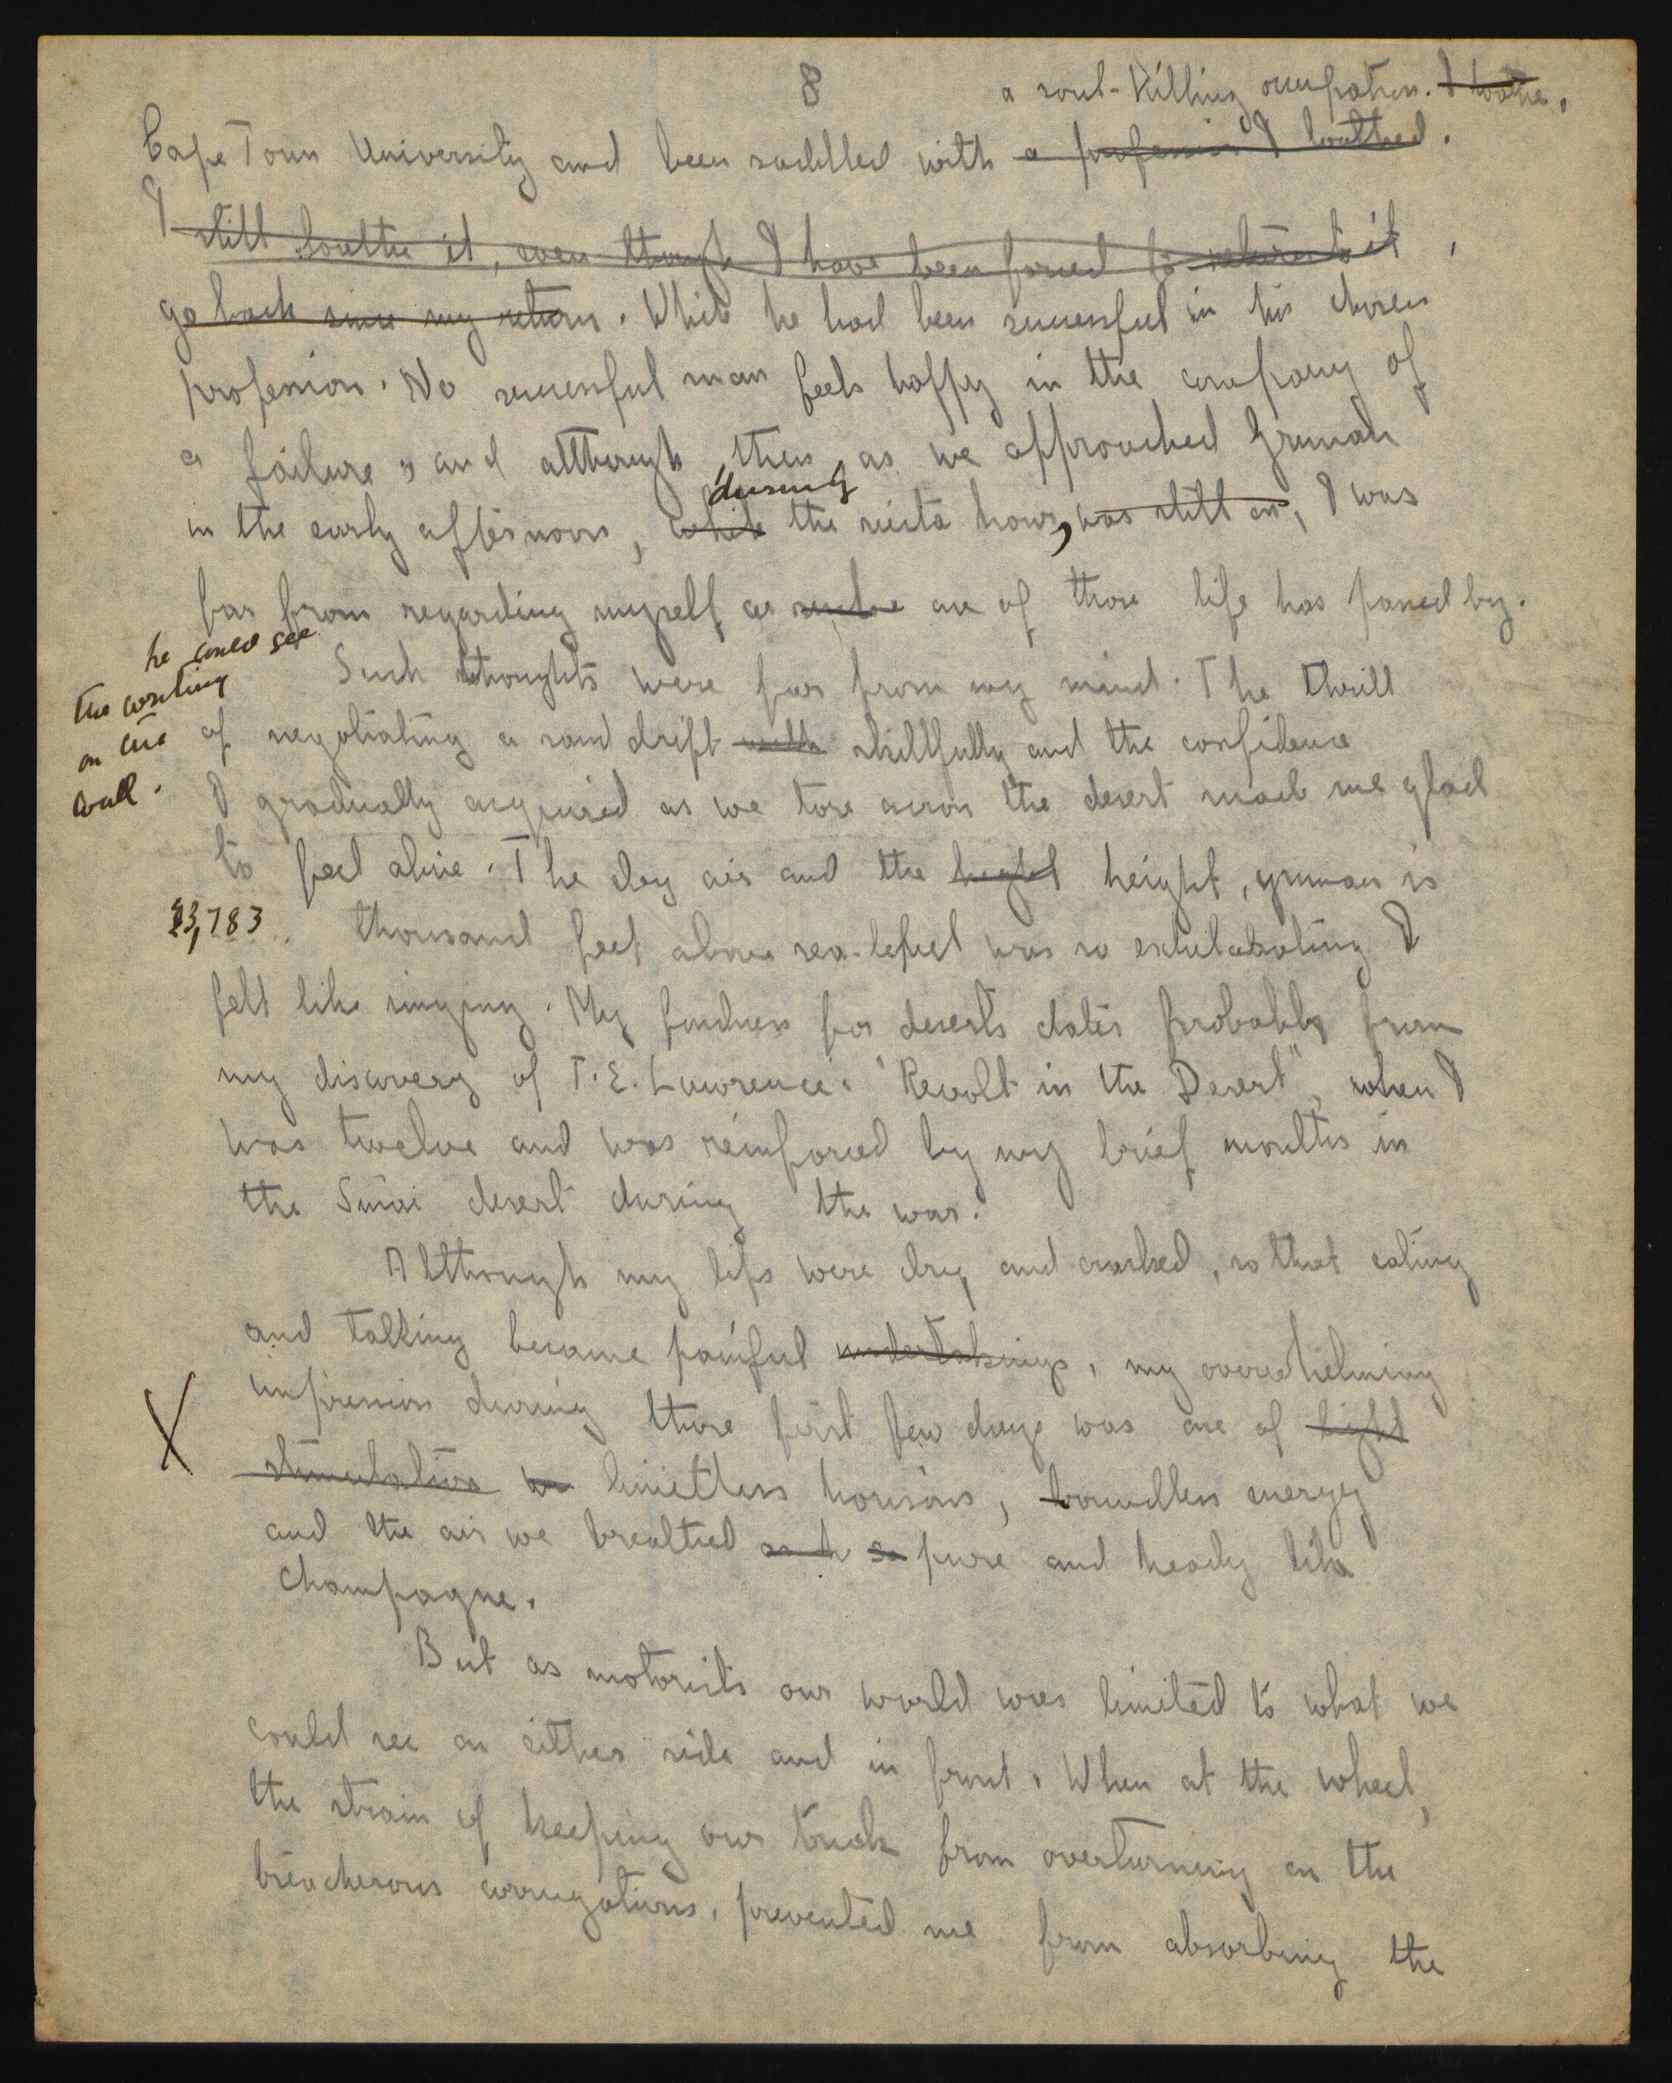 8
a soul-killing occupation. I loathe.
Cape Town University and been saddled with a profession I loathed.
I still loathe it, even though I have been forced to return to it
go back since my return. While he had been successful in his chosen
profession. No successful man feels happy in the company of
a failure and although then, as we approached
in the early afternoon, while during the siesta hour, was still on, I was
far from regarding myself as one of those life has passed by.
he could see
the writing
on the
wall.
Such thoughts were far from my mind. The thrill
of negotiating a sand drift with skillfully and the confidence
I gradually acquired as we tore across the desert made me glad
to feel alive. The dry air and the height height, is
3,783 thousand feet above sea-level was so exhilarating I
felt like singing. My fondness for deserts dates probably from
my discovery of T.E. Lawrence's "Revolt in the Desert", when I
was twelve and was reinforced by my brief months in
the Sinai desert during the war.
Although my lips were dry and cracked, so that eating
and talking became painful undertakings, my overwhelming
impression during those first few days was one of light
X
stimulation limitless horizons, boundless energy
and the air we breathed as so pure and heady like
champagne.
But as motorists our world was limited to what we
could see on either side and in front. When at the wheel,
the strain of keeping our truck from overturning on the
treacherous corrugations, prevented me from absorbing the